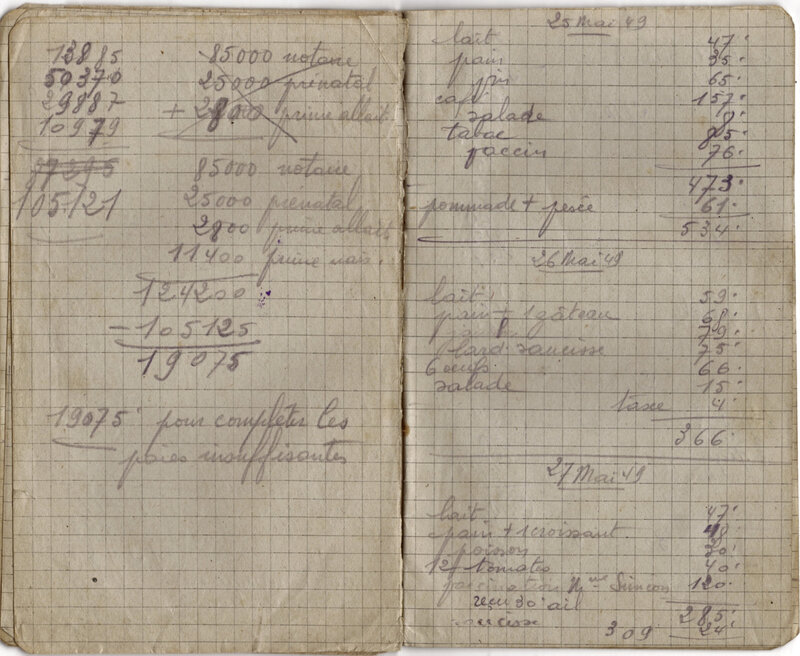 13885
50370
29887
10979
105.121
85000 notaire
25000 prénatal
+ 2800 prime allait
85000 notaire
25000 prénatal
2800 prime allait
11400 prime nais.
124200
- 105125
19075
19075 pour compléter les
paies insuffisantes
25 Mai 49
lait 47
pain 35
vin 65
café 157
salade 8
tabac 85
vaccin 76
473
pommade + pesée 61
534
26 Mai 49
lait 59
pain + 1 gâteau 68
79
lard saucisse 75
6 oeufs 66
salade 15
taxe 4
366
27 Mai 49
lait 47
pain + 1 croissant 48
poisson 30
12 tomates 40
vaccination Mme 120
285
309 24